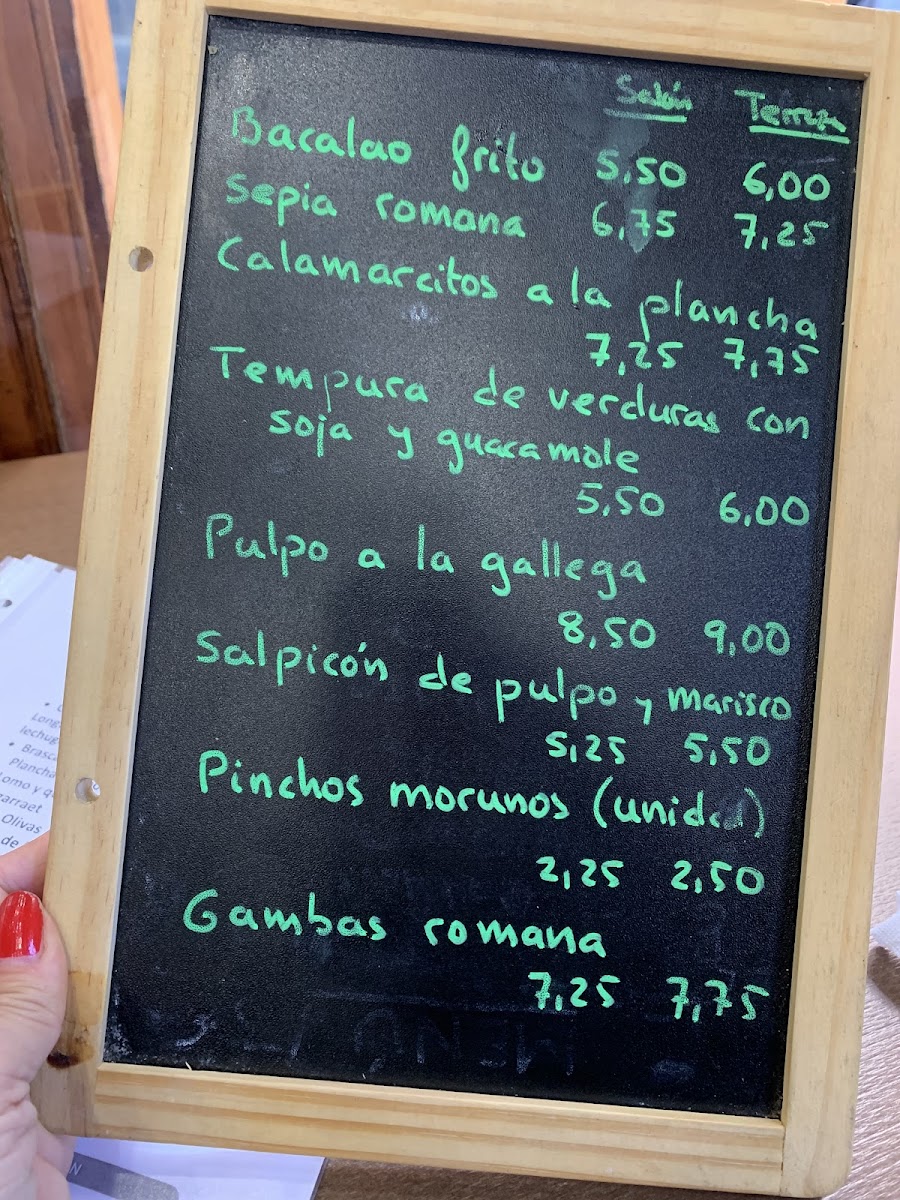 Salón Terraza
Bacalao frito 5,50 6,00
Sepia romana 6,75 7,25
Calamarcitos a la plancha
7,25 7,75
Tempura de verduras con
soja y guacamole
5,50 6,00
Pulpo a la gallega
8,50 9,00
Salpicón de pulpo y marisco
5,25 5,50
Pinchos morunos (unidad)
2,25 2,50
Gambas romana
7,25 7,75
MENÚ
Long
lechug
Brasca
Plancha
omo y q
arraet
Olivas
de